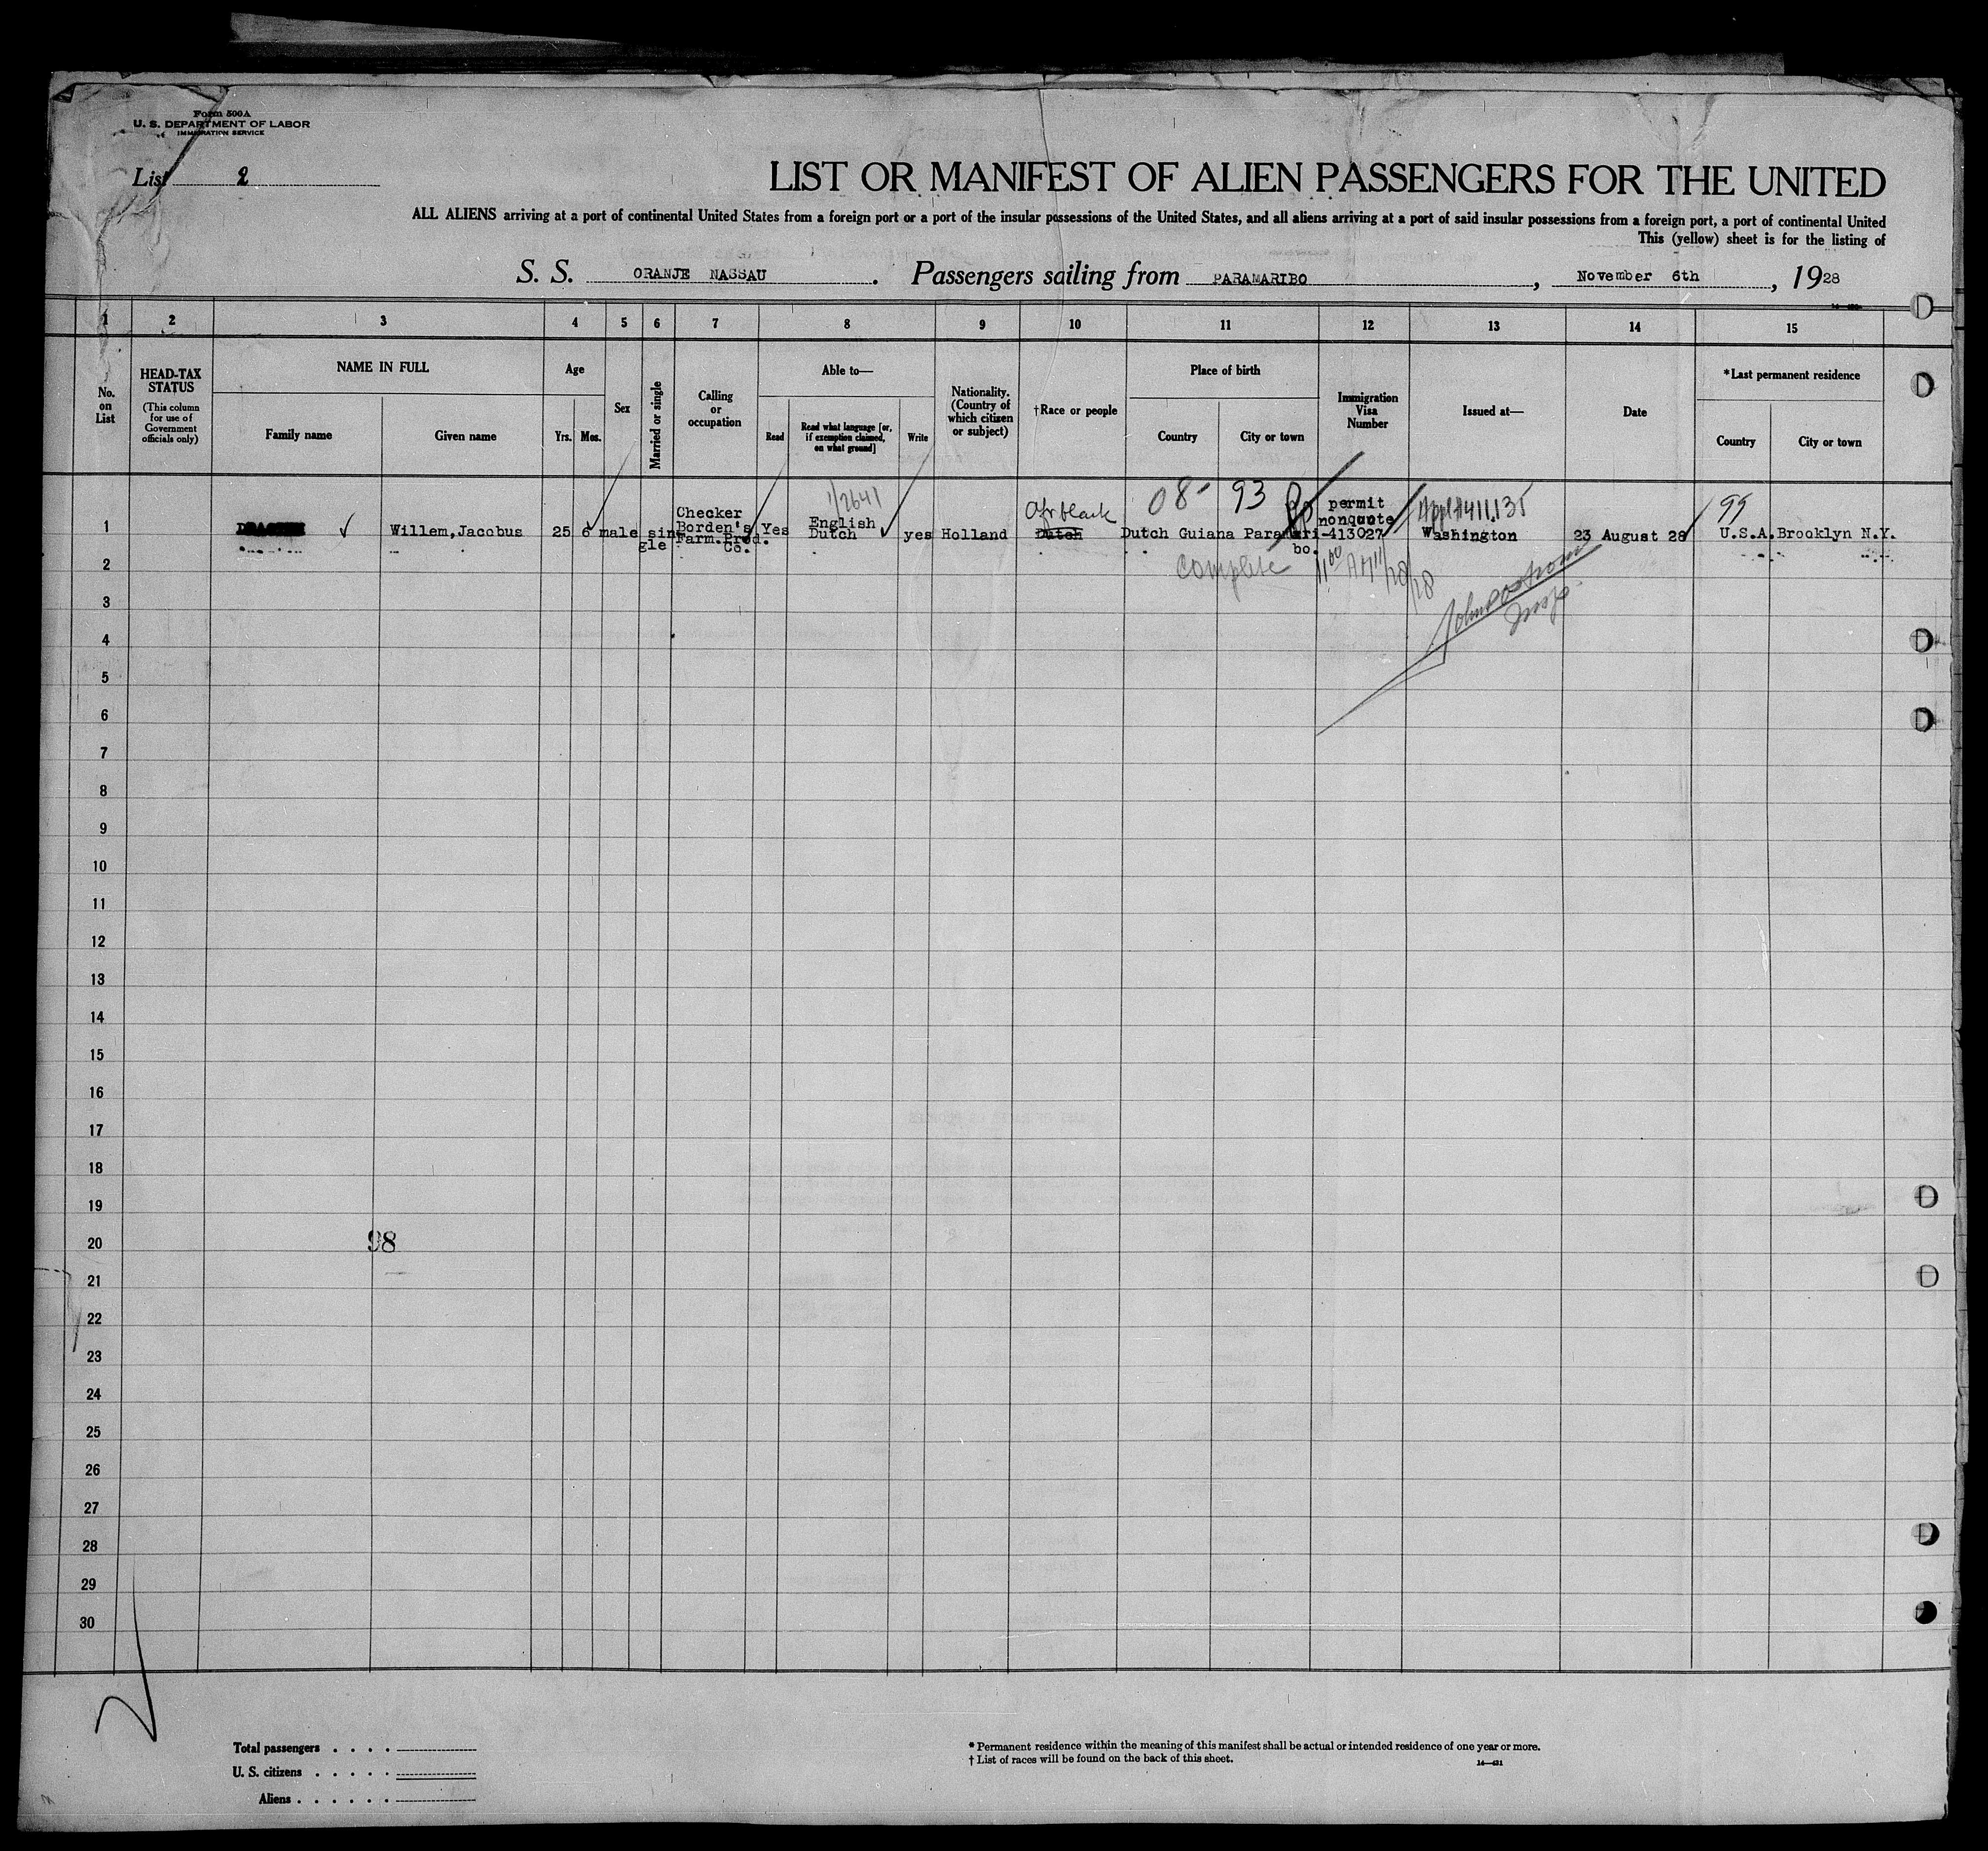 Form 500A
U. S. DEPARTMENT OF LABOR
IMMIGRATION SERVICE
List 2
LIST OR MANIFEST OF ALIEN PASSENGERS FOR THE UNITED
ALL ALIENS arriving at a port of continental United States from a foreign port or a port of the insular possessions of the United States, and all aliens arriving at a port of said insular possessions from a foreign port, a port of continental United
This (yellow) sheet is for the listing of
S. S. ORANJE NASSAU. Passengers sailing from PARAMARIBO, November 6th, 1928
1 2 3 4 5 6 7 8 9 10 11 12 13 14 15
No. on List
HEAD-TAX STATUS
(This column for use of Government officials only)
NAME IN FULL
Family name
Given name
Age
Yrs.
Mos.
Sex
Married or single
Calling or occupation
Able to—
Read
Read what language [or, if exemption claimed, on what ground]
Write
Nationality. (Country of which citizen or subject)
†Race or people
Place of birth
Country
City or town
Immigration Visa Number
Issued at—
Date
*Last permanent residence
Country
City or town
1/2641
08- 93
99
Afr black
1 Willem,Jacobus 25 6 male single Checker Borden's Farm.Prod. Co. Yes English Dutch yes Holland Dutch Dutch Guiana Paramaribo. permit nonquote -413027 Washington 23 August 28 U.S.A. Brooklyn N.Y.
Complete 11 00 AM 11/28/28
2
3
4
5
6
7
8
9
10
11
12
13
14
15
16
17
18
19
20
98
21
22
23
24
25
26
27
28
29
30
Total passengers . . . .
U. S. citizens . . . . .
Aliens . . . . . .
* Permanent residence within the meaning of this manifest shall be actual or intended residence of one year or more.
† List of races will be found on the back of this sheet.
14—431